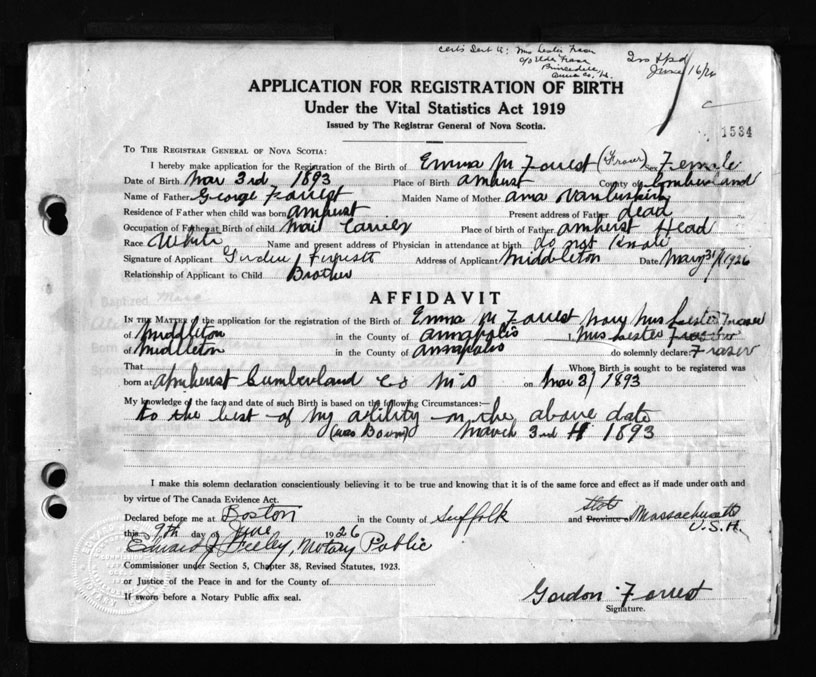 certs Sent to: Mrs Lester Fraser
c/o
Annis Co.
June 16/26
APPLICATION FOR REGISTRATION OF BIRTH
Under the Vital Statistics Act 1919
Issued by The Registrar General of Nova Scotia.
1534
TO THE REGISTRAR GENERAL OF NOVA SCOTIA:
I hereby make application for the Registration of the Birth of Emma M Forrest (Fraser) Sex Female
Date of Birth Mar 3rd 1893 Place of Birth Amherst County of Cumberland
Name of Father George Forrest Maiden Name of Mother Anna Vanbuskirk
Residence of Father when child was born Amherst Present address of Father dead
Occupation of Father at Birth of child Mail Carrier Place of birth of Father Amherst Head
Race White Name and present address of Physician in attendance at birth do not Know
Signature of Applicant Gorden Forrest Address of Applicant Middleton Date May 31/1926
Relationship of Applicant to Child Brother
AFFIDAVIT
IN THE MATTER of the application for the registration of the Birth of Emma M Forrest now Mrs Lester Fraser
of Middleton in the County of Annapolis I, Mrs Lester
of Middleton in the County of Annapolis do solemnly declare: Fraser
That Whose Birth is sought to be registered was
born at Amherst Cumberland Co N S on Mar 3/1893
My knowledge of the fact and date of such Birth is based on the following Circumstances:—
to the best of my ability on the above date
(was Born) March 3rd 1893
I make this solemn declaration conscientiously believing it to be true and knowing that it is of the same force and effect as if made under oath and
by virtue of The Canada Evidence Act.
Declared before me at Boston in the County of Suffolk and Province of State Massachusetts
U.S.A.
this 9th day of June 1926
Edward J Feeley, Notary Public
Commissioner under Section 5, Chapter 38, Revised Statutes, 1923.
or Justice of the Peace in and for the County of
If sworn before a Notary Public affix seal.
Gordon Forrest
Signature.